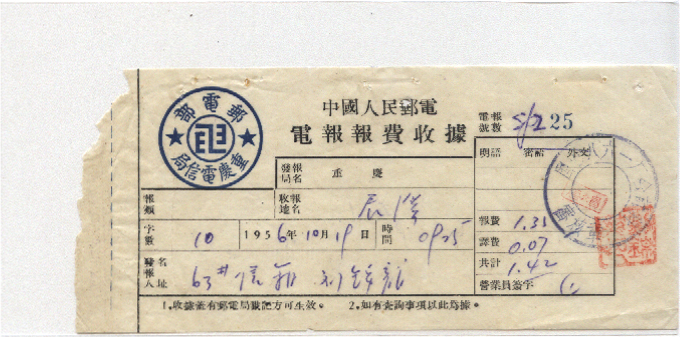 郵電部
重慶電信局
中國人民郵電
電報報費收據
電報號數 5/2 25
明語 密語 外文
發報局名 重慶
報類
收報地名 辰溪
字數 10 1956年10月19日 時間 0925
報費 1.35
譯費 0.07
共計 1.42
發報人名址 63#信箱
營業員簽字
1.收據蓋有郵電局戳記方可生效。 2.如有查詢事項以此爲據。